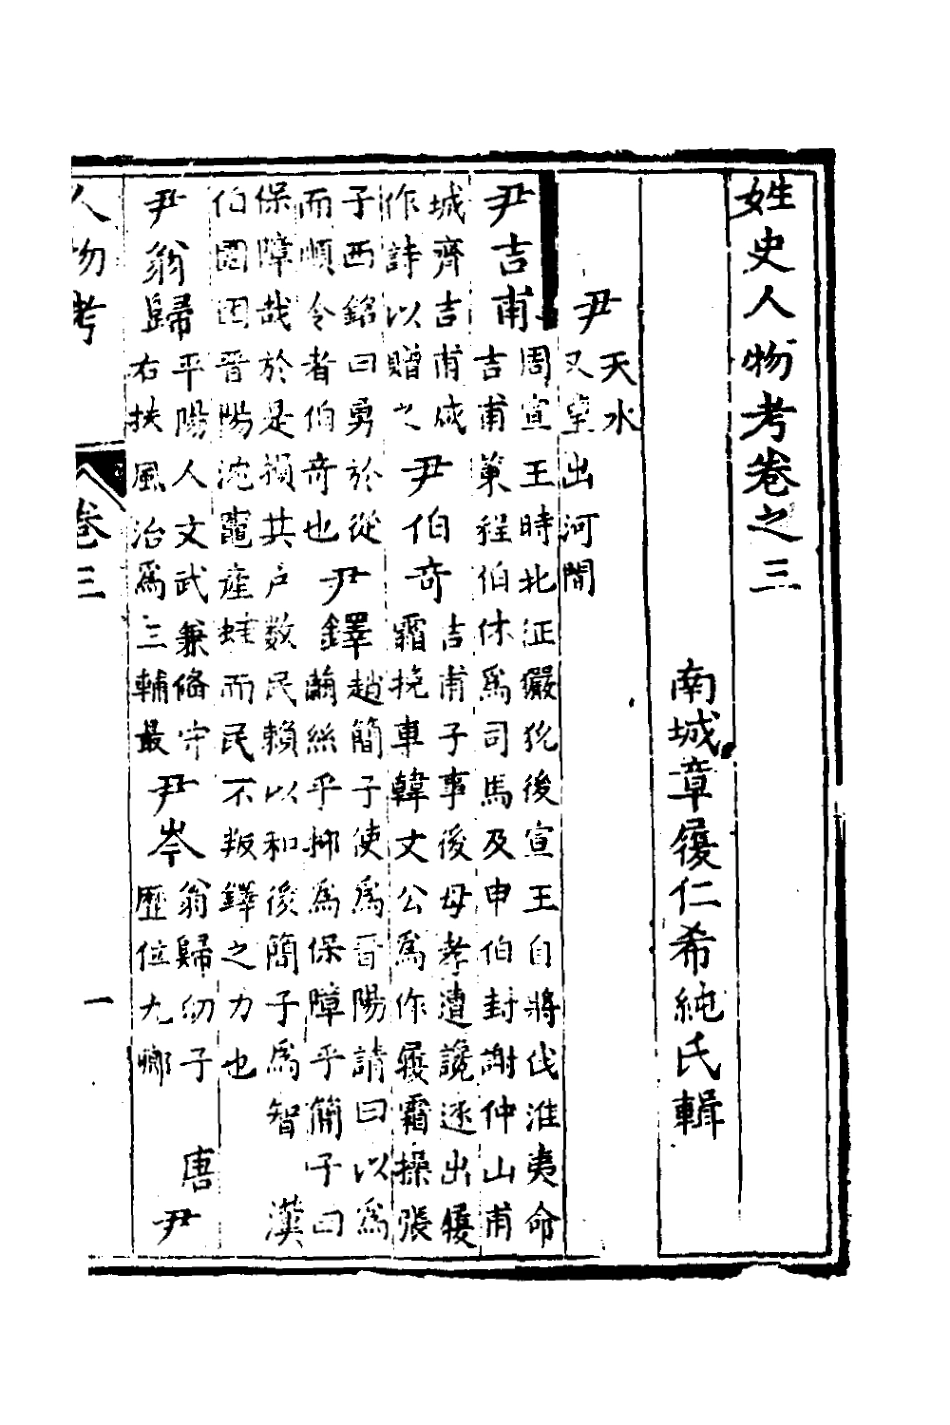 姓史人物考卷之三
南城章履仁希純氏輯
尹 天水
又望出河間
尹吉甫 周宣王時北征玁狁後宣王自將伐淮夷命
吉甫策程伯休爲司馬及申伯封謝仲山甫
城齊吉甫咸
作詩以贈之
尹伯奇 吉甫子事後母孝遭讒逐出履
霜挽車韓文公爲作履霜操張
子西銘曰勇於從
而順令者伯奇也
尹鐸 趙簡子使爲晉陽請曰以爲
繭絲乎抑爲保障乎簡子曰
保障哉於是損其户数民賴以和後簡子爲智
伯圍因晋陽沈竈產蛙而民不叛鐸之力也
漢
尹翁歸 平陽人文武兼偹守
右扶風治爲三輔最
尹岑 翁歸幼子
歷位九卿
唐
尹
人物考
卷三
一